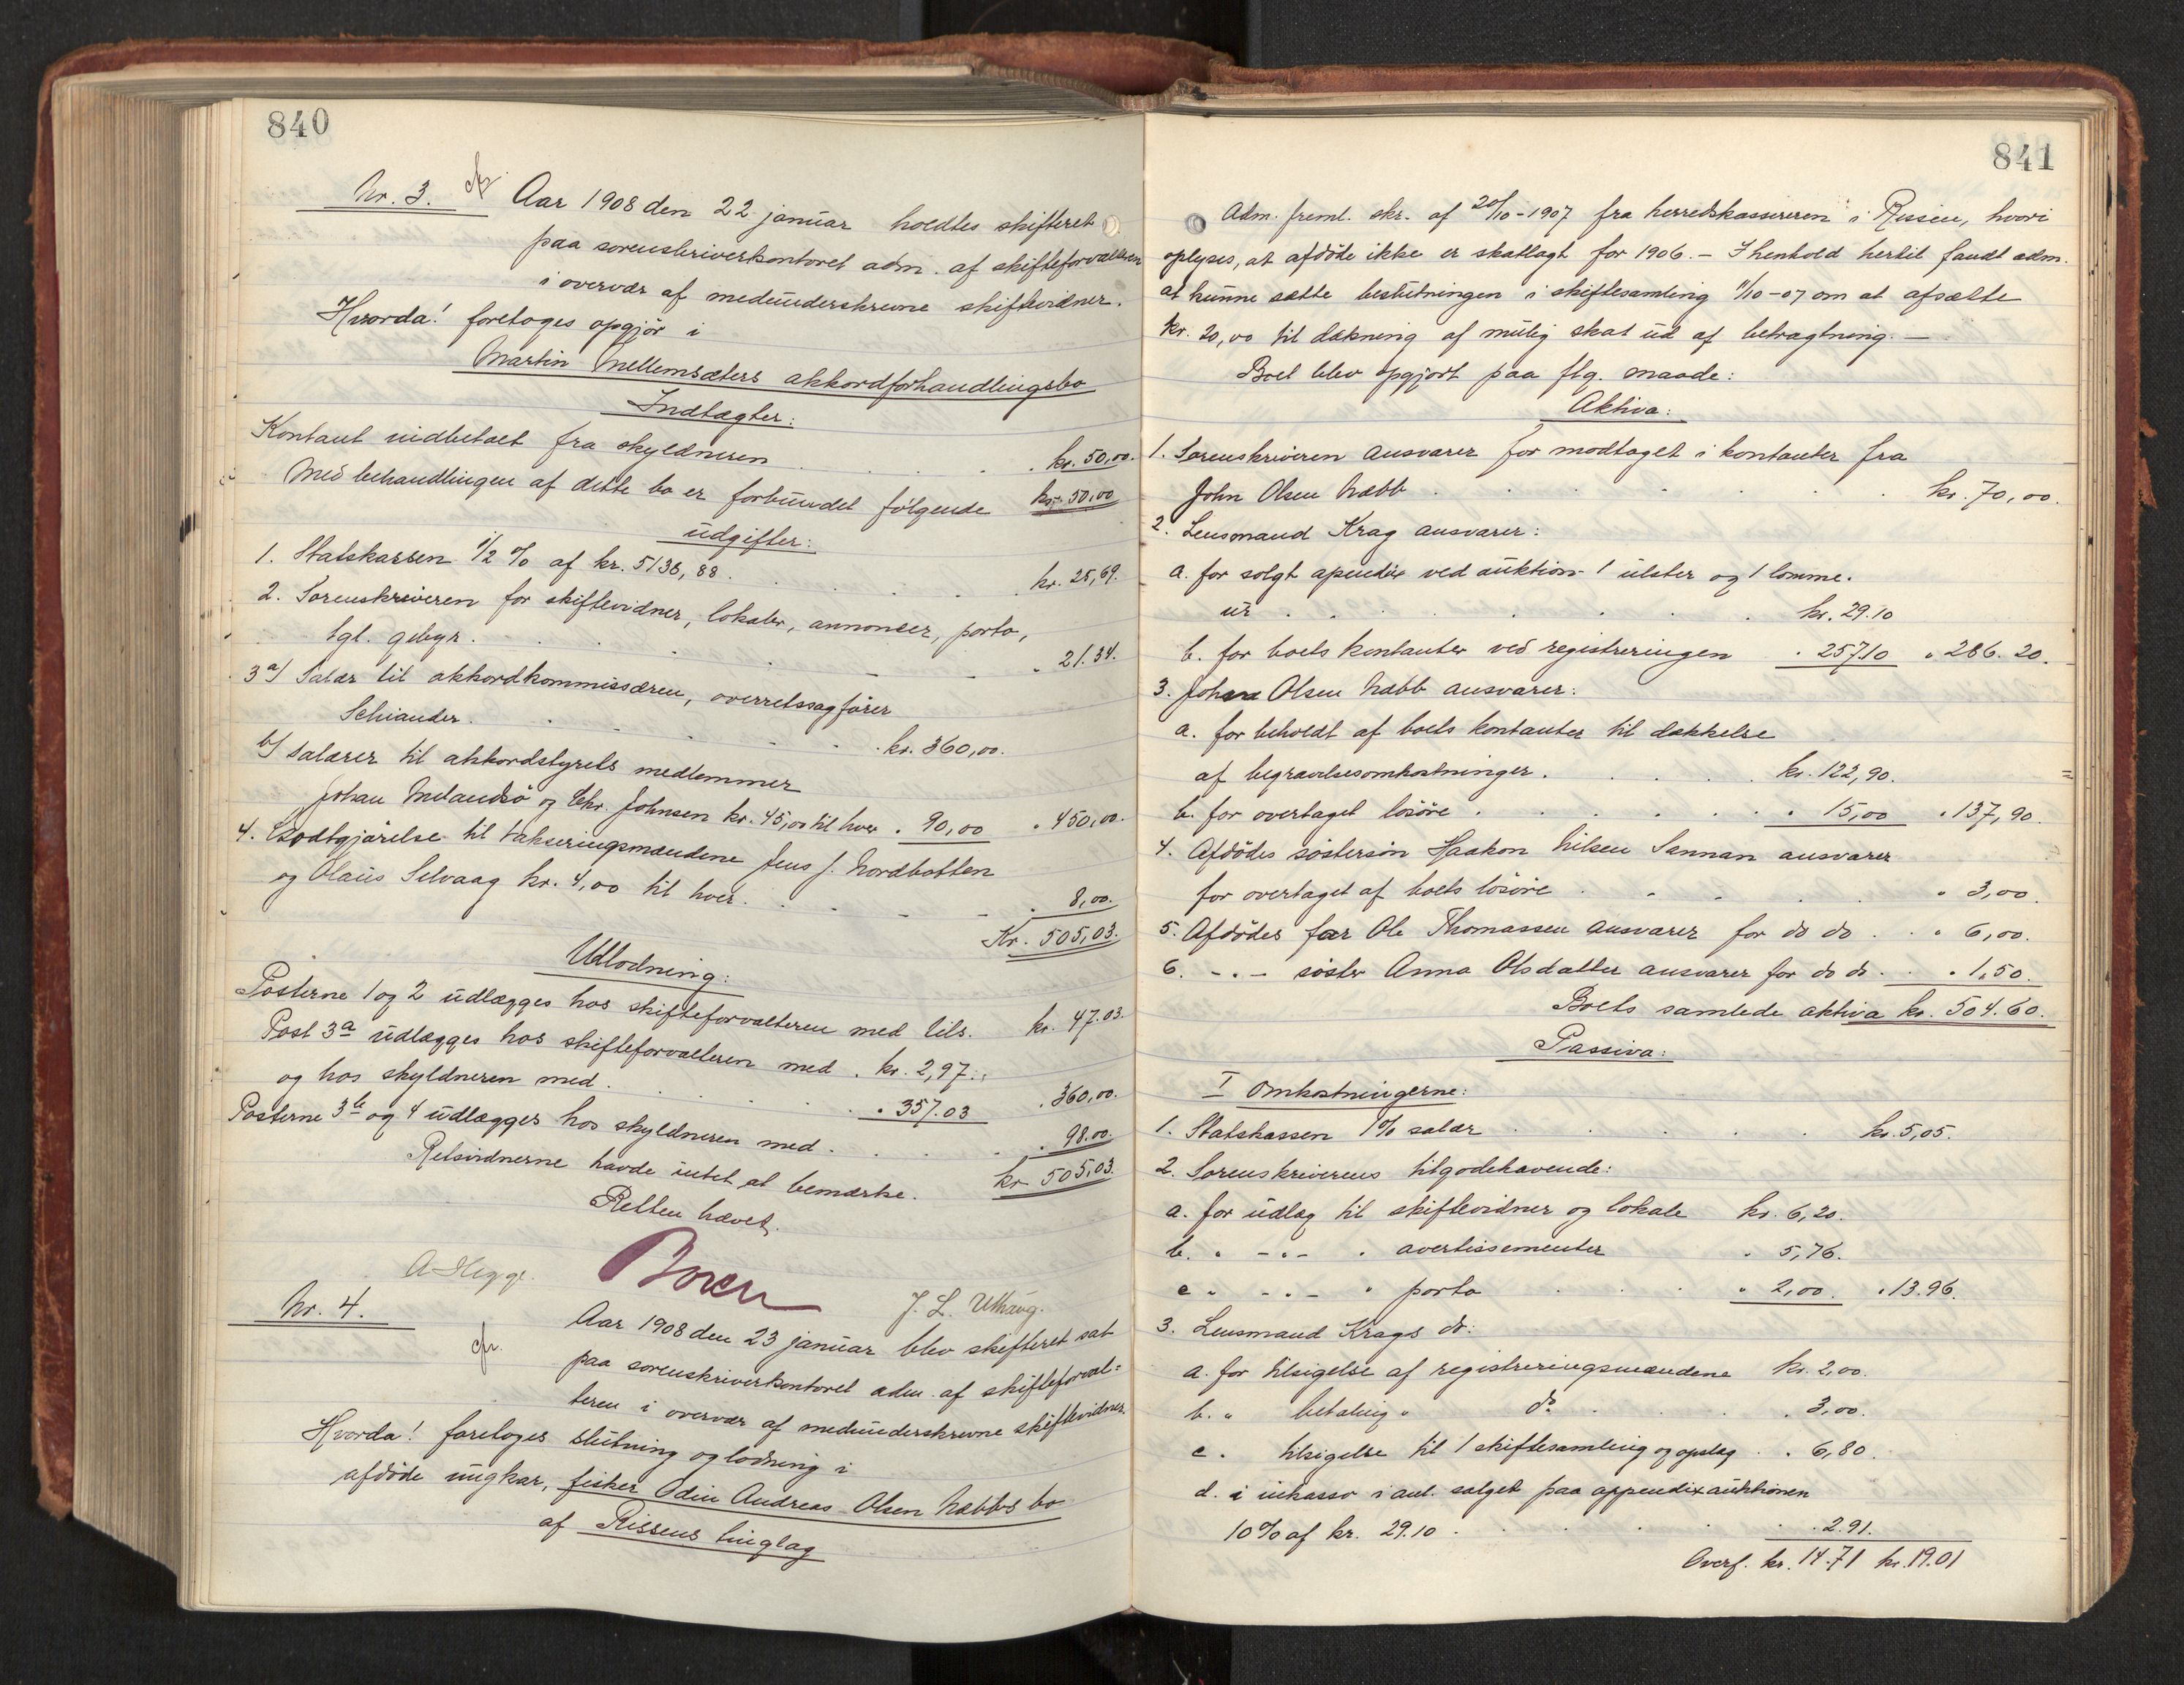 840
Nr. 3. Aar 1908 den 22 januar holdtes skifteret
paa sorenskriverkontoret adm. af skifteforvalteren
i overvær af medunderskrevne skiftevidner.
Hvorda! foretoges opgjör i
Martin Mellemsæters akkordforhandlingsbo
Indtægter:
Kontant indbetalt fra skyldneren . . . kr. 50,00.
kr. 50,00
Med behandlingen af dette bo er forbundet følgende
udgifter:
1. Statskassen 1/2 % af kr. 5136,88 . . . kr. 25,69.
2. Sorenskriveren for skiftevidner, lokaler, annoncer, porto,
tgl. gebyr . . . " 21.34.
3 a) Salær til akkordkommissæren, overretssagfører
Schiander . . . kr. 360,00.
b) salærer til akkordstyrets medlemmer
Johan Melandsö og Chr. Johnsen kr. 45,00 til hver " 90,00 " 450,00.
4. Godtgjörelse til takseringsmændene Jens J. Nordbotten
og Olaus Selvaag kr. 4,00 til hver . . . 8,00.
Kr. 505,03.
Udlodning:
Posterne 1 og 2 udlægges hos skifteforvalteren med tils. kr. 47.03.
Post 3a udlægges hos skifteforvalteren med . kr. 2,97
og hos skyldneren med . . . " 357.03 " 360,00.
Posterne 3b og 4 udlægges hos skyldneren med . . . " 98.00.
kr 505,03.
Retsvidnerne havde intet at bemærke.
Retten hævet.
A Hegge. Boren J. L. Uthaug.
Nr. 4. Aar 1908 den 23 januar blev skifteret sat
paa sorenskriverkontoret adm. af skifteforval=
teren i overvær af medunderskrevne skiftevidner.
Hvorda! foretoges slutning og lodning i
afdöde ungkar, fisker Odin Andreas Olsen Næbbs bo
af Rissens tinglag
841
Adm. freml. skr. af 20/10-1907 fra herredskassereren i Rissen, hvori
oplyses, at afdöde ikke er skatlagt for 1906. - I henhold hertil fandt adm.
at kunne sætte beslutningen i skiftesamling 11/10-07 om at afsætte
kr. 20,00 til dækning af mulig skat ud af betragtning. -
Boet blev opgjort paa flg. maade:
Aktiva:
1. Sorenskriveren ansvarer for modtaget i kontanter fra
John Olsen Næbb . . . kr. 70,00.
2. Lensmand Krag ansvarer:
a. for solgt apendix ved auktion 1 ulster og 1 lomme-
ur . . . kr. 29.10
b. for boets kontanter ved registreringen . 257.10 " 286.20.
3. Johan Olsen Næbb ansvarer:
a. for beholdt af boets kontanter til dækkelse
af begravelsesomkostninger . . . kr. 122,90.
b. for overtaget lösöre . . . " 15,00 " 137,90.
4. Afdödes søstersön Haakon Nilsen Sannan ansvarer
for overtaget af boets lösöre . . . " 3,00.
5. Afdödes far Ole Thomassen ansvarer for do do . . " 6,00.
6. - " - søster Anna Olsdatter ansvarer for do do . . " 1,50.
Boets samlede aktiva kr. 504.60.
Passiva:
I Omkostningerne:
1. Statskassen 1% salær . . . kr. 5,05.
2. Sorenskriverens tilgodehavende:
a. for udlæg til skiftevidner og lokale kr. 6,20.
b. " - " - " avertissementer " 5,76.
c " - " - " porto . . . " 2,00. " 13.96.
3. Lensmand Krags do:
a. for tilsigelse af registreringsmændene kr. 2,00.
b. " betaling " do . . . 3,00.
c. tilsigelse til 1 skiftesamling og opslag . . 6,80.
d. i inkasso i anl. salget paa appendixauktionen
10% af kr. 29.10 . . . 2.91.
Overf. kr. 14.71 kr. 19.01